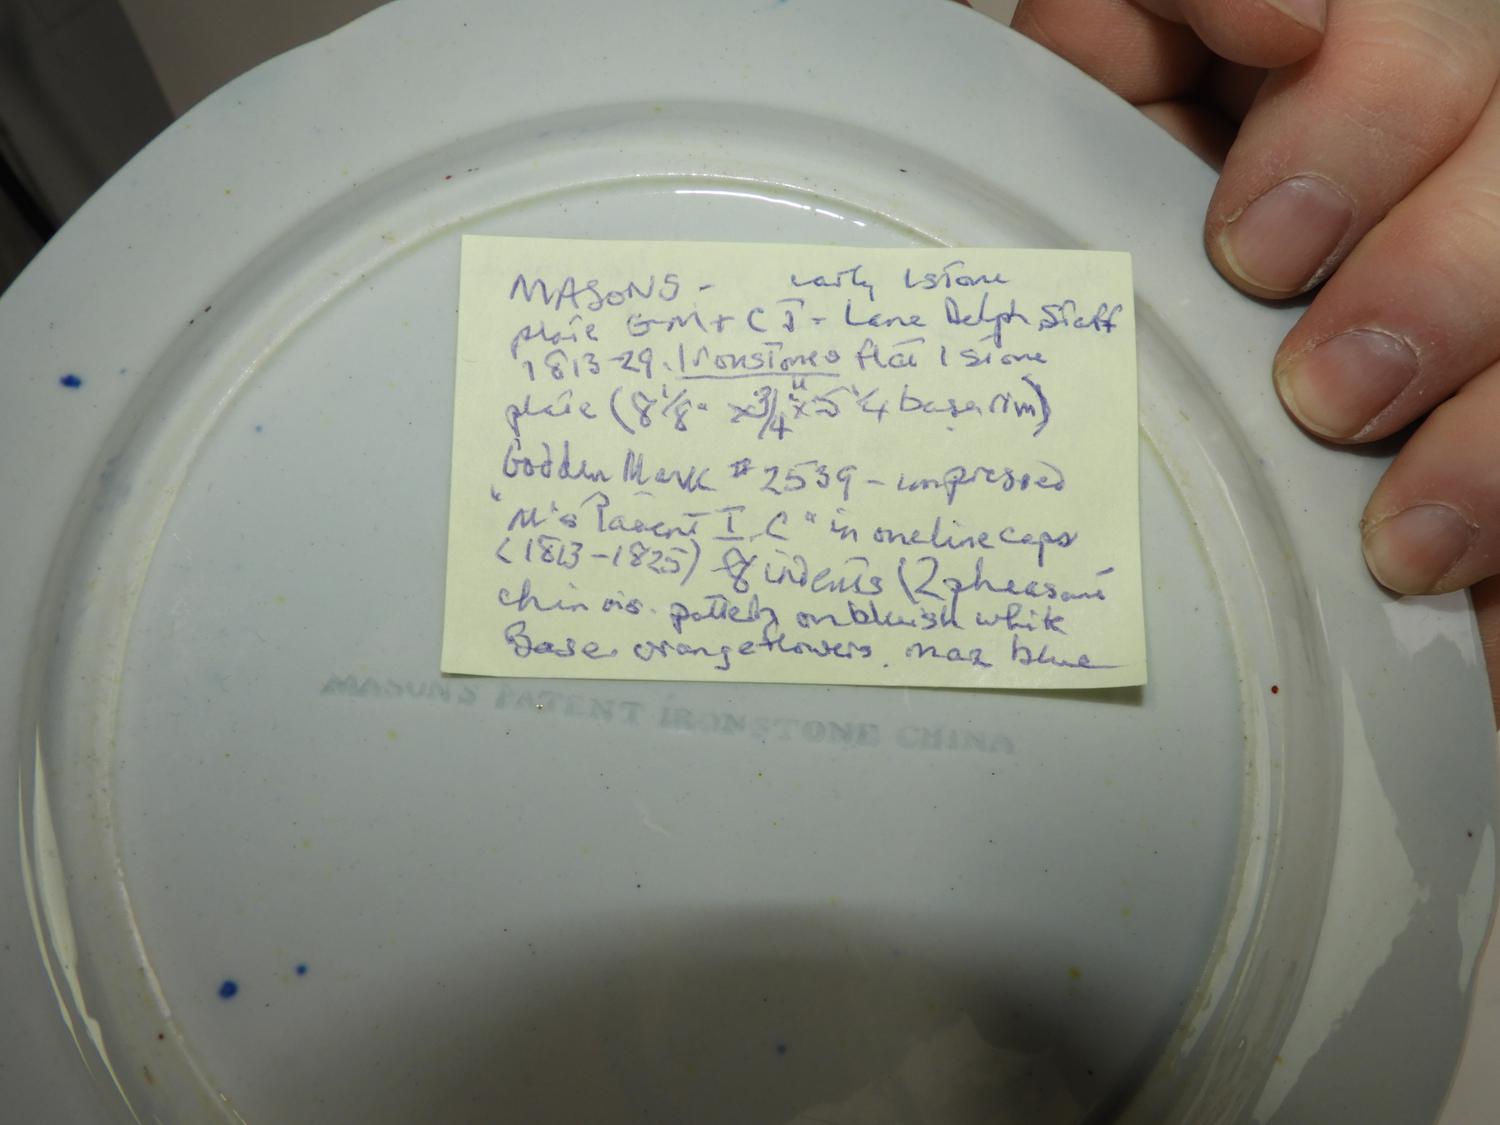 MASONS - early Istone
plate GM + CJ - Lane Delph, Staff
1813-29. Ironstone flat Istone
plate (8 1/8" x 3/4" x 5 1/4 base rim)
Godden Mark #2539 - impressed
"M's Patent I.C" in one line caps
(1813-1825) 8 indents (2 pheasant
chinois. pattern on bluish white
Base orange flowers. maz blue
MASON'S PATENT IRONSTONE CHINA